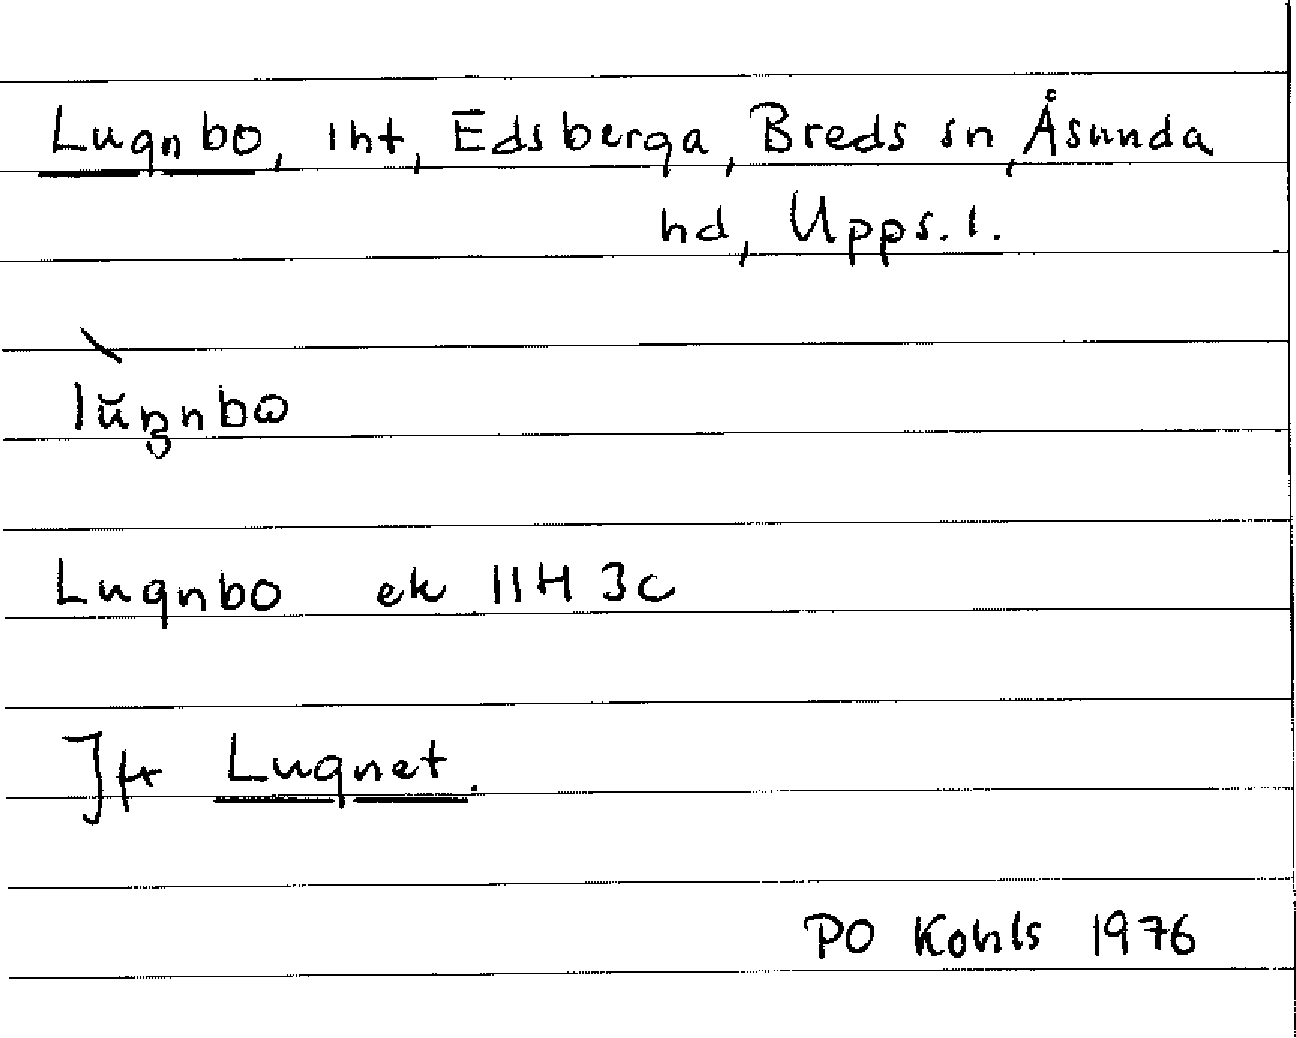 Lugnbo, lht, Edsberga, Breds sn, Åsunda
hd, Upps. l.
lŭŋnbɷ
Lugnbo ek 11H 3c
Jfr Lugnet.
PO Kohls 1976